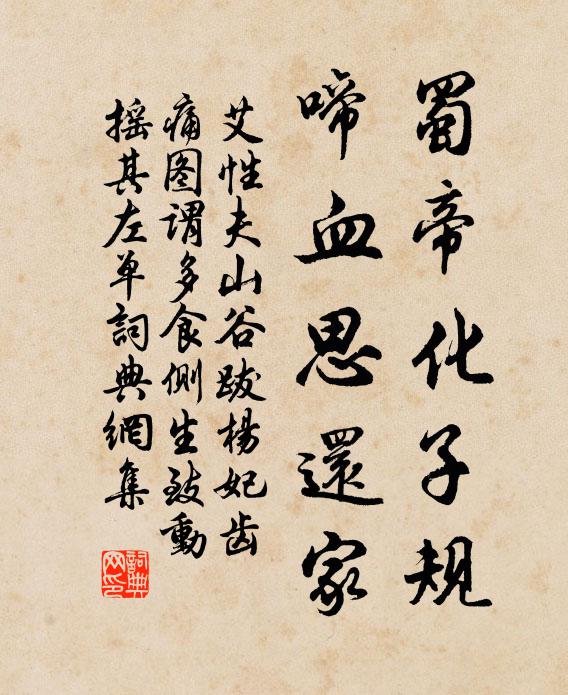 蜀帝化子規
啼血思還家
艾性夫山谷跋楊妃齿
痛图谓多食側生致動
摇其左单詞典網集
詞典网印